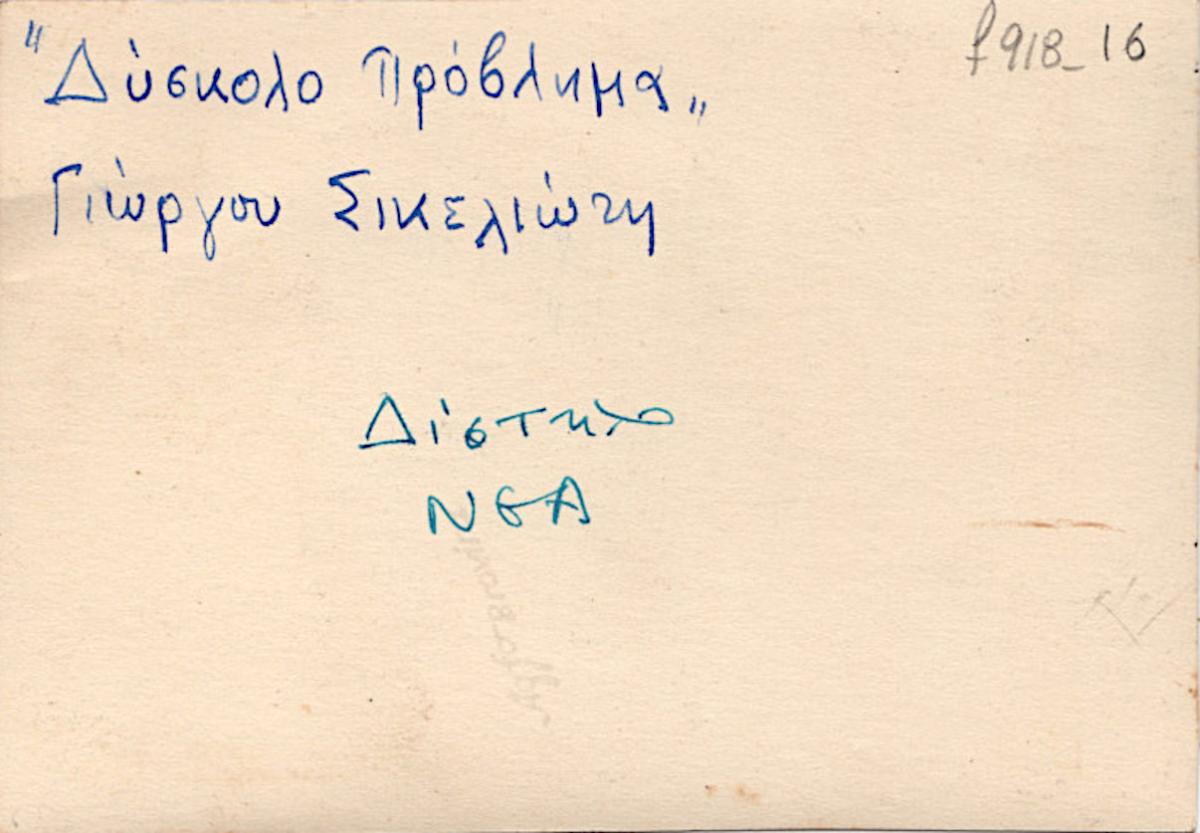 f918_16
"Δύσκολο Πρόβλημα„
Γιώργου Σικελιώτη
Δίστηλο
ΝΕΑ